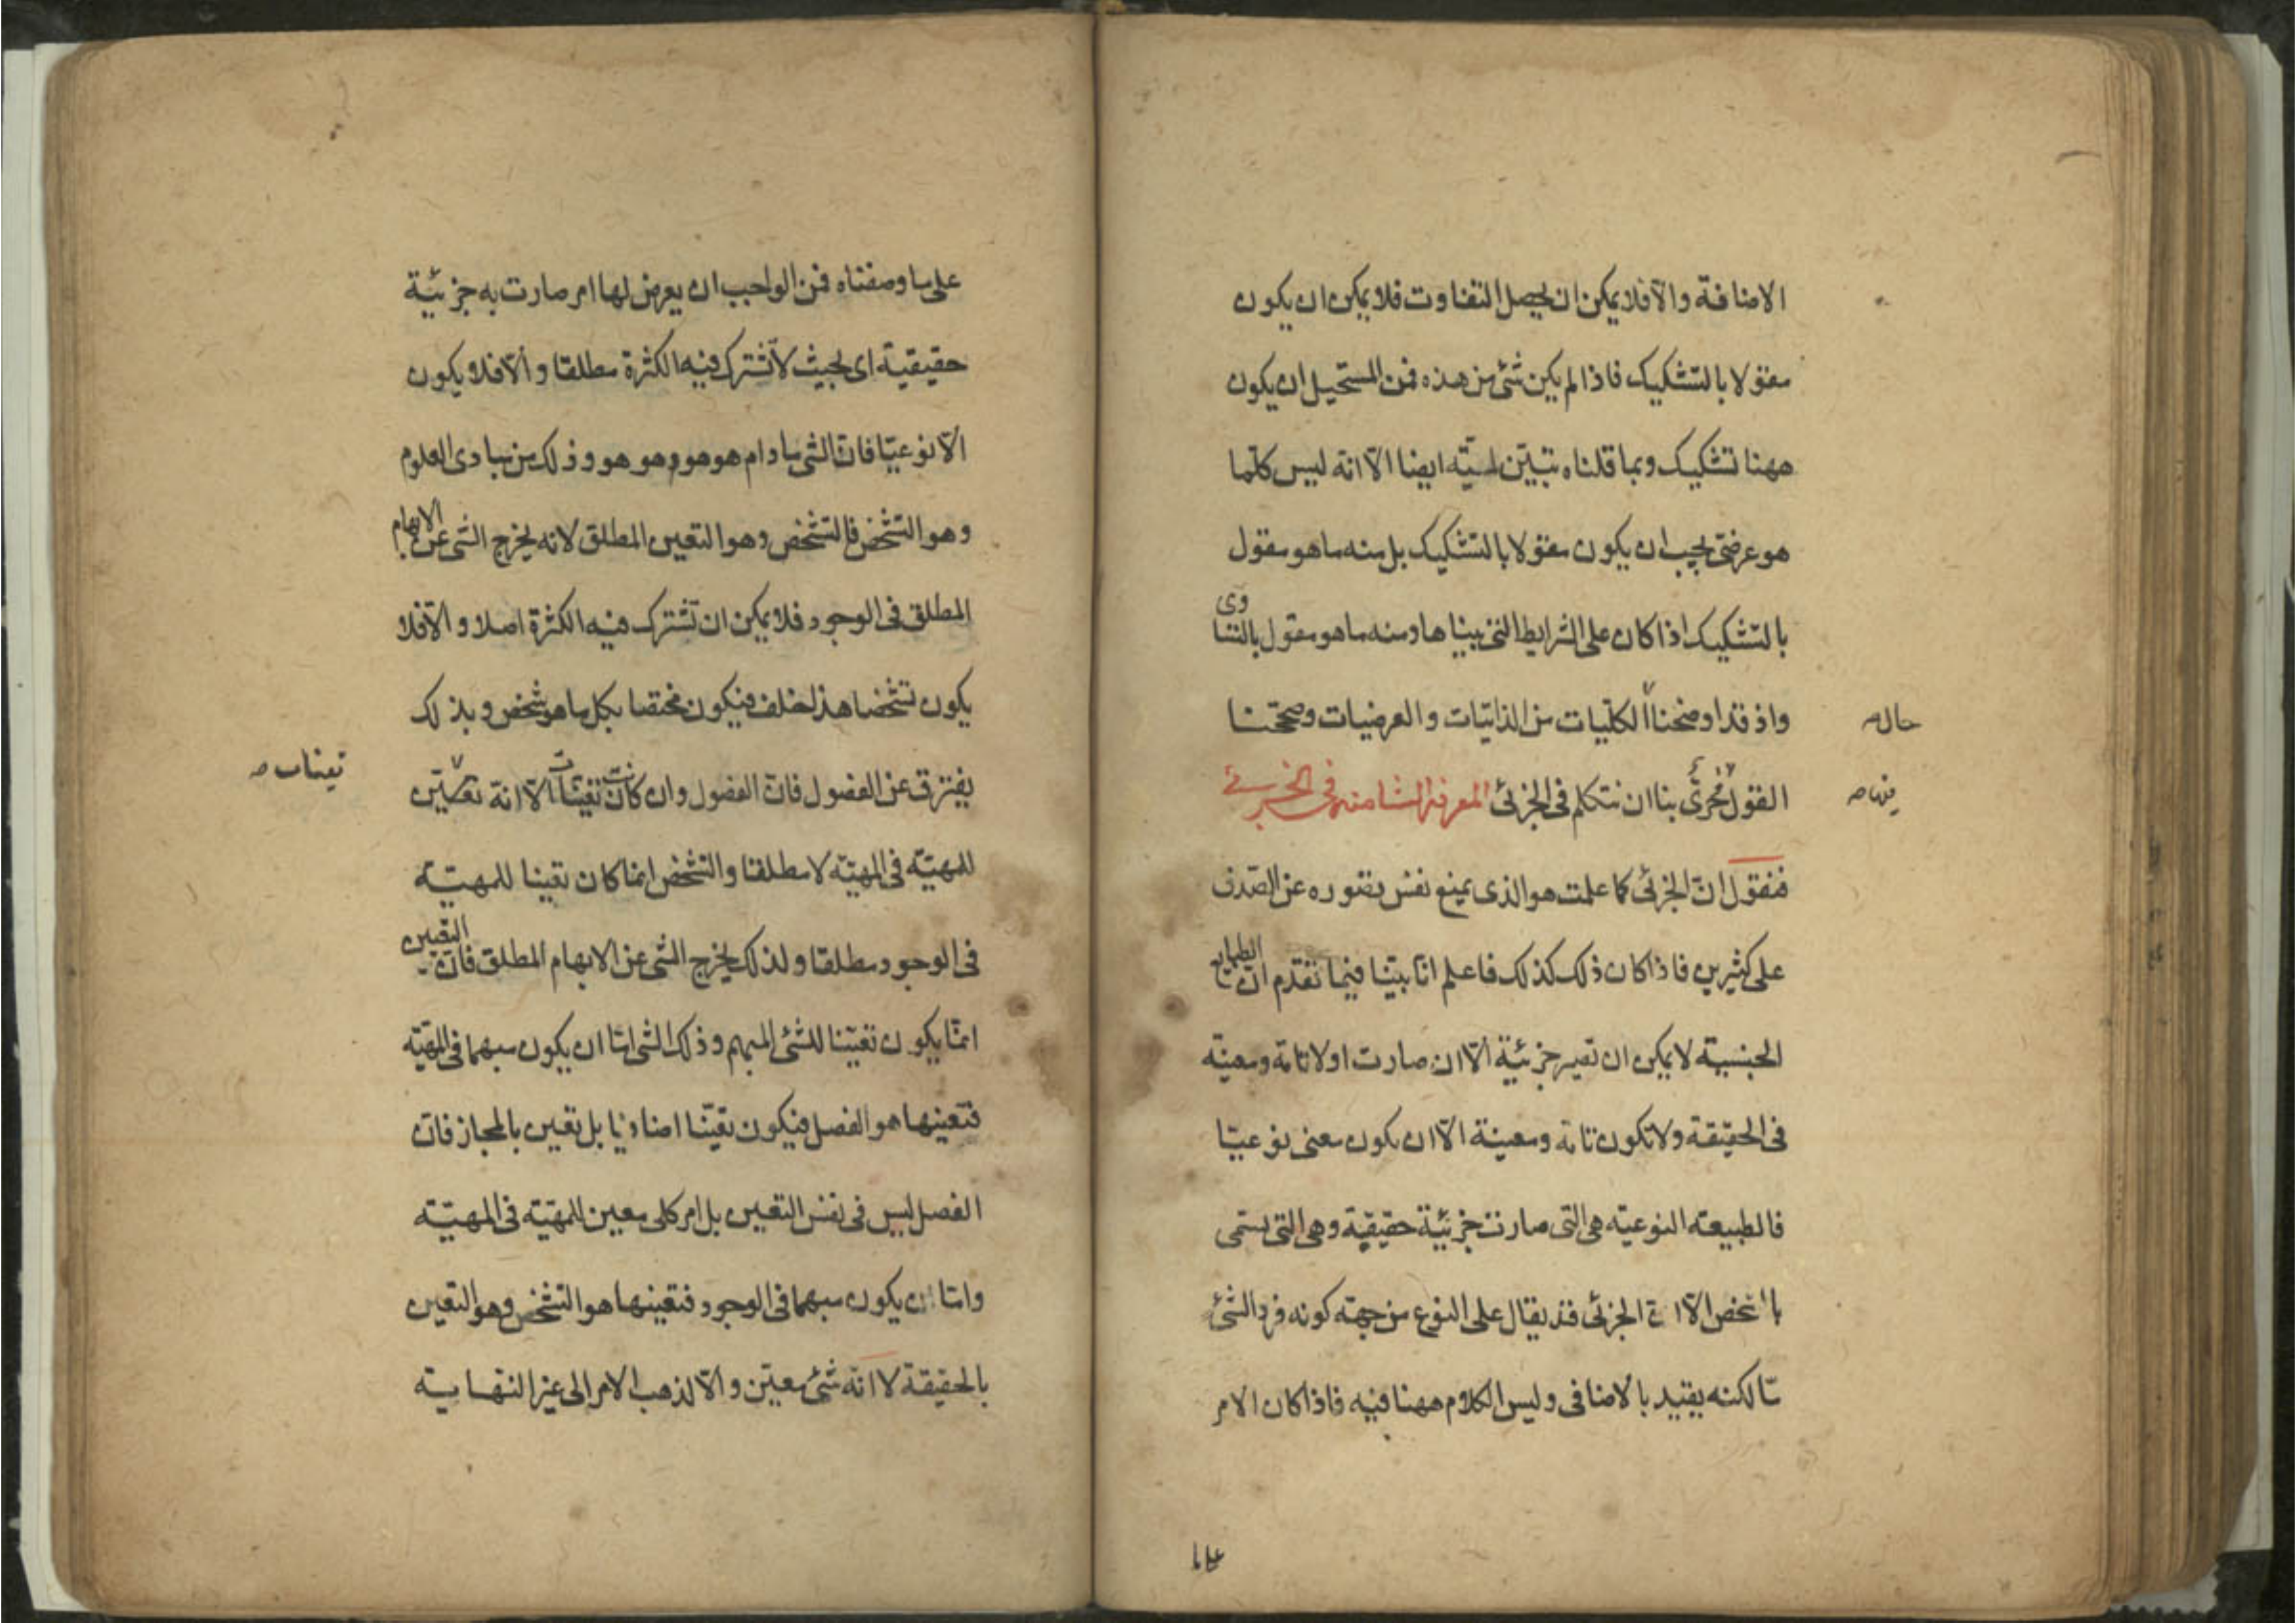 الاضافة والّا فلا يمكن ان يحصل التفاوت فلا يمكن ان يكون
مقولا بالتشكيك فاذا لم يكن شئ من هذه فمن المستحيل ان يكون
ههنا تشكيك وبما قلناه تبيّن لميّته ايضا الّا انه ليس كلّما
هو عرضىّ يجب ان يكون مقولا بالتشكيك بل منه ما هو مقول
بالتشكيك اذا كان على الشرايط التى بيناها ومنه ما هو مقول بالتساوى
واذ قد اوضحنا الكلّيات من الذاتيّات والعرضيات وصحّحنا
حال صه
القول فحرىّ بنا ان نتكلم فى الجزئ المعرفة الثامنة فى الجزئے
فيها صه
فنقول انّ الجزئى كما علمت هو الذى يمنع نفس تصوره عن الصّدق
على كثيرين فاذا كان ذلك كذلك فاعلم انا بيّنا فيما تقدم انّ الطبايع
الجنسية لا يمكن ان تصير جزئيّة الّا ان صارت اولا تامّة ومعيّنة
فى الحقيقة ولا تكون تامّة ومعينة الّا ان يكون معنى نوعيّا
فالطبيعة النوعيّة هى التى صارت جزئيّة حقيقيّة وهى التى يسمى
بالشخص الّا انّ الجزئى قد يقال على النوع من جهة كونه فرد الشئ
مّا لكنه يقيد بالاضافى وليس الكلام ههنا فيه فاذا كان الامر
على ما
على ما وصفناه فمن الواجب ان يعرض لها امر صارت به جزئيّة
حقيقية اى بحيث لا تشترك فيه الكثرة مطلقا والّا فلا يكون
الّا نوعيّا فانّ الشى ما دام هو هو وهو هو وذلك من مبادى العلوم
وهو التشخّص فالتشخّص وهو التعين المطلق لانه يخرج الشى عن الابهام
المطلق فى الوجود فلا يمكن ان تشترك فيه الكثرة اصلا والّا فلا
يكون تشخّصا هذا خلف فيكون مختصا بكل ما هو شخص وبذلك
يفترق عن الفصول فانّ الفصول وان كانت تعيّنات الّا انّه تعيّن
تعينات صه
للمهيّة فى المهيّة لا مطلقا والتشخص انما كان تعينا للمهيّة
فى الوجود مطلقا ولذلك يخرج الشى عن الابهام المطلق فانّ التعين
انمّا يكون تعيّنا للشئ المبهم وذلك الشى امّا ان يكون مبهما فى المهيّة
فتعينها هو الفصل فيكون تعيّنا اضافيا بل تعين بالمجاز فانّ
الفصل ليس فى نفس التعين بل امر كلى معين للمهيّة فى المهيّة
وامّا ان يكون مبهما فى الوجود فتعينها هو التشخّص وهو التعين
بالحقيقة لا انّه شئ معيّن والّا لذهب الامر الى غير النهاية